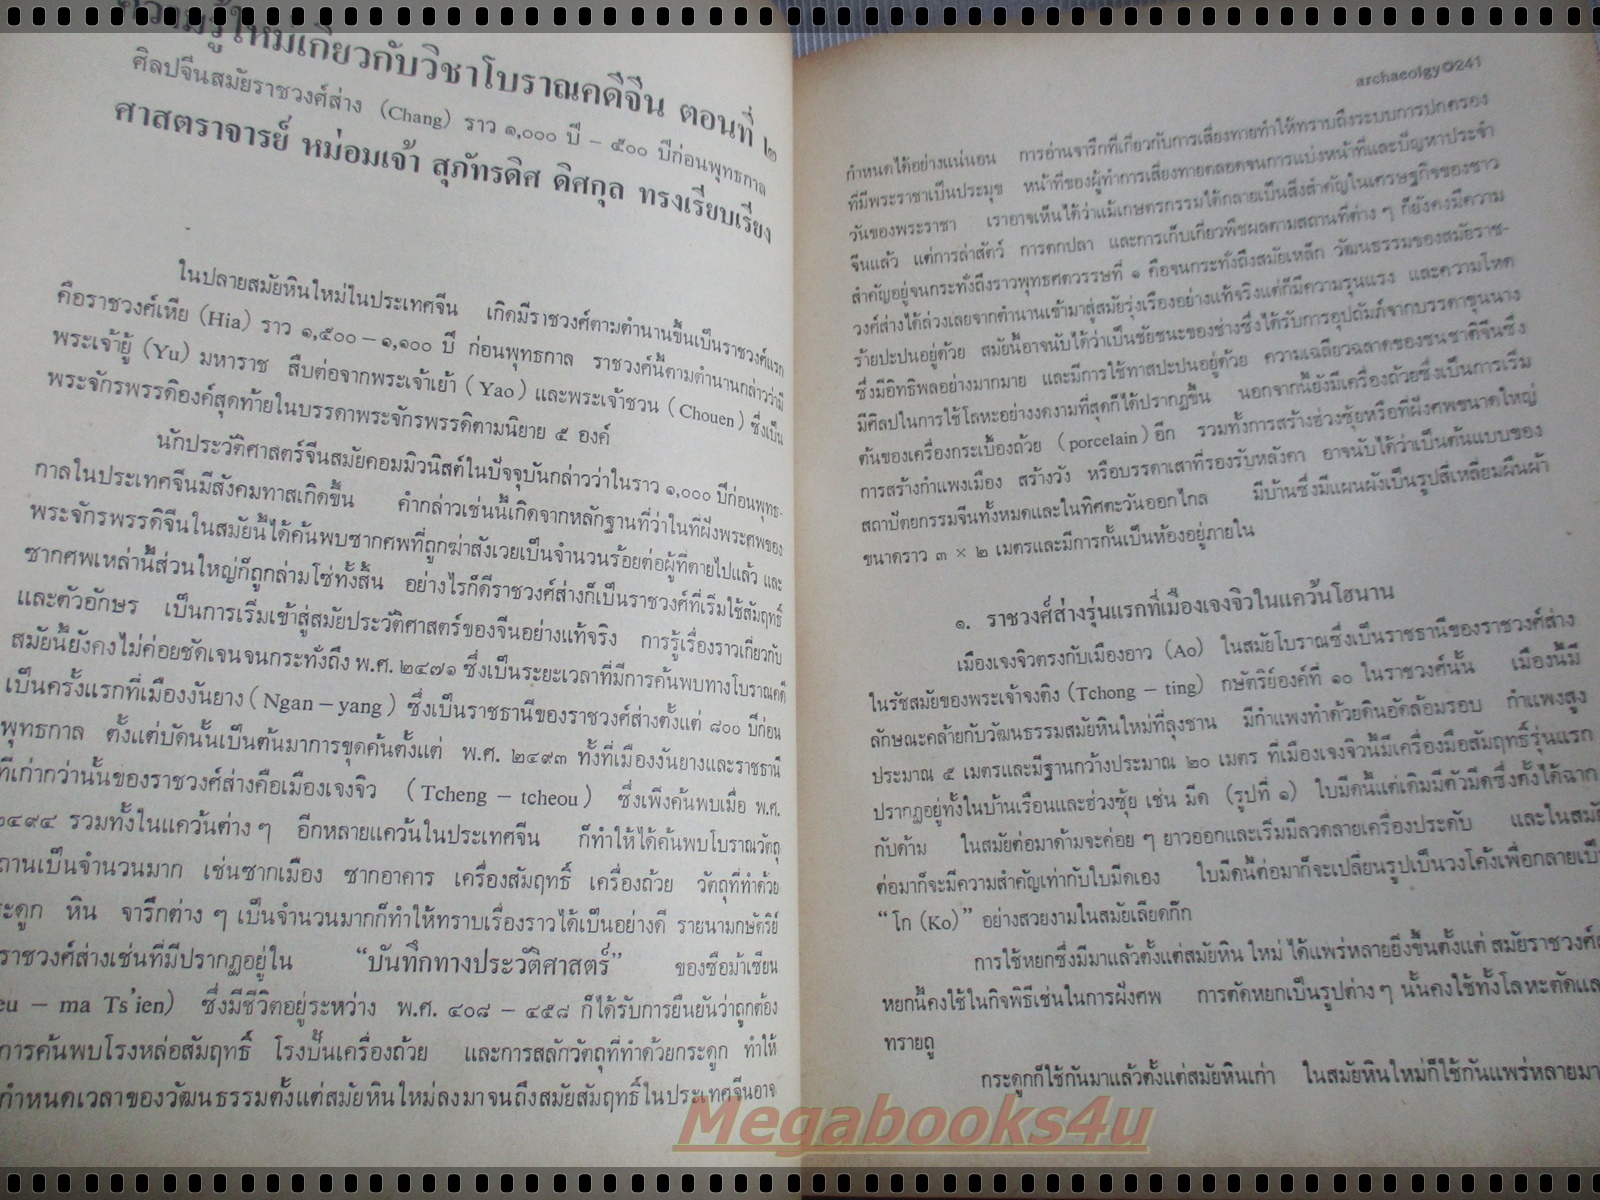 ความรู้ใหม่เกี่ยวกับวิชาโบราณคดีจีน ตอนที่ ๒
ศิลปจีนสมัยราชวงศ์ส่าง (Chang) ราว ๑,๐๐๐ ปี – ๕๐๐ ปีก่อนพุทธกาล
ศาสตราจารย์ หม่อมเจ้า สุภัทรดิศ ดิศกุล ทรงเรียบเรียง
ในปลายสมัยหินใหม่ในประเทศจีน เกิดมีราชวงศ์ตามตำนานขึ้นเป็นราชวงศ์แรก
คือราชวงศ์เหีย (Hia) ราว ๑,๕๐๐ – ๑,๑๐๐ ปี ก่อนพุทธกาล ราชวงศ์นี้ตามตำนานกล่าวว่ามี
พระเจ้ายู้ (Yu) มหาราช สืบต่อจากพระเจ้าเย้า (Yao) และพระเจ้าชวน (Chouen) ซึ่งเป็น
พระจักรพรรดิองค์สุดท้ายในบรรดาพระจักรพรรดิตามนิยาย ๕ องค์
นักประวัติศาสตร์จีนสมัยคอมมิวนิสต์ในปัจจุบันกล่าวว่าในราว ๑,๐๐๐ ปีก่อนพุทธ-
กาลในประเทศจีนมีสังคมทาสเกิดขึ้น คำกล่าวเช่นนี้เกิดจากหลักฐานที่ว่าในที่ฝังพระศพของ
พระจักรพรรดิจีนในสมัยนี้ได้ค้นพบซากศพที่ถูกฆ่าสังเวยเป็นจำนวนร้อยต่อผู้ที่ตายไปแล้ว และ
ซากศพเหล่านี้ส่วนใหญ่ก็ถูกล่ามโซ่ทั้งสิ้น อย่างไรก็ดีราชวงศ์ส่างก็เป็นราชวงศ์ที่เริ่มใช้สัมฤทธิ์
และตัวอักษร เป็นการเริ่มเข้าสู่สมัยประวัติศาสตร์ของจีนอย่างแท้จริง การรู้เรื่องราวเกี่ยวกับ
สมัยนี้ยังคงไม่ค่อยชัดเจนจนกระทั่งถึง พ.ศ. ๒๔๗๑ ซึ่งเป็นระยะเวลาที่มีการค้นพบทางโบราณคดี
เป็นครั้งแรกที่เมืองงันยาง (Ngan – yang) ซึ่งเป็นราชธานีของราชวงศ์ส่างตั้งแต่ ๘๐๐ ปีก่อน
พุทธกาล ตั้งแต่บัดนั้นเป็นต้นมาการขุดค้นตั้งแต่ พ.ศ. ๒๔๙๓ ทั้งที่เมืองงันยางและราชธานี
ที่เก่ากว่านั้นของราชวงศ์ส่างคือเมืองเจงจิว (Tcheng – tcheou) ซึ่งเพิ่งค้นพบเมื่อ พ.ศ.
๒๔๙๔ รวมทั้งในแคว้นต่าง ๆ อีกหลายแคว้นในประเทศจีน ก็ทำให้ได้ค้นพบโบราณวัตถุ
ถานเป็นจำนวนมาก เช่นซากเมือง ซากอาคาร เครื่องสัมฤทธิ์ เครื่องถ้วย วัตถุที่ทำด้วย
ะดูก หิน จารึกต่าง ๆ เป็นจำนวนมากก็ทำให้ทราบเรื่องราวได้เป็นอย่างดี รายนามกษัตริย์
ราชวงศ์ส่างเช่นที่มีปรากฏอยู่ใน “บันทึกทางประวัติศาสตร์” ของซือม้าเซียน
eu – ma Ts'ien) ซึ่งมีชีวิตอยู่ระหว่าง พ.ศ. ๔๐๘ – ๔๕๘ ก็ได้รับการยืนยันว่าถูกต้อง
การค้นพบโรงหล่อสัมฤทธิ์ โรงปั้นเครื่องถ้วย และการสลักวัตถุที่ทำด้วยกระดูก ทำให้
กำหนดเวลาของวัฒนธรรมตั้งแต่สมัยหินใหม่ลงมาจนถึงสมัยสัมฤทธิ์ในประเทศจีนอาจ
archaeolgy 241
กำหนดได้อย่างแน่นอน การอ่านจารึกที่เกี่ยวกับการเสี่ยงทายทำให้ทราบถึงระบบการปกครอง
ที่มีพระราชาเป็นประมุข หน้าที่ของผู้ทำการเสี่ยงทายตลอดจนการแบ่งหน้าที่และปัญหาประจำ
วันของพระราชา เราอาจเห็นได้ว่าแม้เกษตรกรรมได้กลายเป็นสิ่งสำคัญในเศรษฐกิจของชาว
จีนแล้ว แต่การล่าสัตว์ การตกปลา และการเก็บเกี่ยวพืชผลตามสถานที่ต่าง ๆ ก็ยังคงมีความ
สำคัญอยู่จนกระทั่งถึงราวพุทธศตวรรษที่ ๑ คือจนกระทั่งถึงสมัยเหล็ก วัฒนธรรมของสมัยราช-
วงศ์ส่างได้ล่วงเลยจากตำนานเข้ามาสู่สมัยรุ่งเรืองอย่างแท้จริงแต่ก็มีความรุนแรง และความโหด
ร้ายปะปนอยู่ด้วย สมัยนี้อาจนับได้ว่าเป็นชัยชนะของช่างซึ่งได้รับการอุปถัมภ์จากบรรดาขุนนาง
ซึ่งมีอิทธิพลอย่างมากมาย และมีการใช้ทาสปะปนอยู่ด้วย ความเฉลียวฉลาดของชนชาติจีนซึ่ง
มีศิลปในการใช้โลหะอย่างงดงามที่สุดก็ได้ปรากฏขึ้น นอกจากนี้ยังมีเครื่องถ้วยซึ่งเป็นการเริ่ม
ต้นของเครื่องกระเบื้องถ้วย (porcelain) อีก รวมทั้งการสร้างฮ่วงซุ้ยหรือที่ฝังศพขนาดใหญ่
การสร้างกำแพงเมือง สร้างวัง หรือบรรดาเสาที่รองรับหลังคา อาจนับได้ว่าเป็นต้นแบบของ
สถาปัตยกรรมจีนทั้งหมดและในทิศตะวันออกไกล มีบ้านซึ่งมีแผนผังเป็นรูปสี่เหลี่ยมผืนผ้า
ขนาดราว ๓ × ๒ เมตรและมีการกั้นเป็นห้องอยู่ภายใน
๑. ราชวงศ์ส่างรุ่นแรกที่เมืองเจงจิวในแคว้นโฮนาน
เมืองเจงจิวตรงกับเมืองอาว (Ao) ในสมัยโบราณซึ่งเป็นราชธานีของราชวงศ์ส่าง
ในรัชสมัยของพระเจ้าจงติง (Tchong – ting) กษัตริย์องค์ที่ ๑๐ ในราชวงศ์นั้น เมืองนี้มี
ลักษณะคล้ายกับวัฒนธรรมสมัยหินใหม่ที่ลุงชาน มีกำแพงทำด้วยดินอัดล้อมรอบ กำแพงสูง
ประมาณ ๕ เมตรและมีฐานกว้างประมาณ ๒๐ เมตร ที่เมืองเจงจิวนี้มีเครื่องมือสัมฤทธิ์รุ่นแรก
ปรากฏอยู่ทั้งในบ้านเรือนและฮ่วงซุ้ย เช่น มีด (รูปที่ ๑) ใบมีดนี้แต่เดิมมีตัวมีดซึ่งตั้งได้ฉาก
กับด้าม ในสมัยต่อมาด้ามจะค่อย ๆ ยาวออกและเริ่มมีลวดลายเครื่องประดับ และในสมัย
ต่อมาก็จะมีความสำคัญเท่ากับใบมีดเอง ใบมีดนี้ต่อมาก็จะเปลี่ยนรูปเป็นวงโค้งเพื่อกลายเป็น
“โก (Ko)” อย่างสวยงามในสมัยเลียดก๊ก
การใช้หยกซึ่งมีมาแล้วตั้งแต่สมัยหิน ใหม่ ได้แพร่หลายยิ่งขึ้นตั้งแต่ สมัยราชวงศ์
หยกนี้คงใช้ในกิจพิธีเช่นในการฝังศพ การตัดหยกเป็นรูปต่าง ๆ นั้นคงใช้ทั้งโลหะตัดแล
ทรายถู
กระดูกก็ใช้กันมาแล้วตั้งแต่สมัยหินเก่า ในสมัยหินใหม่ก็ใช้กันแพร่หลายมา
Megabooks4u